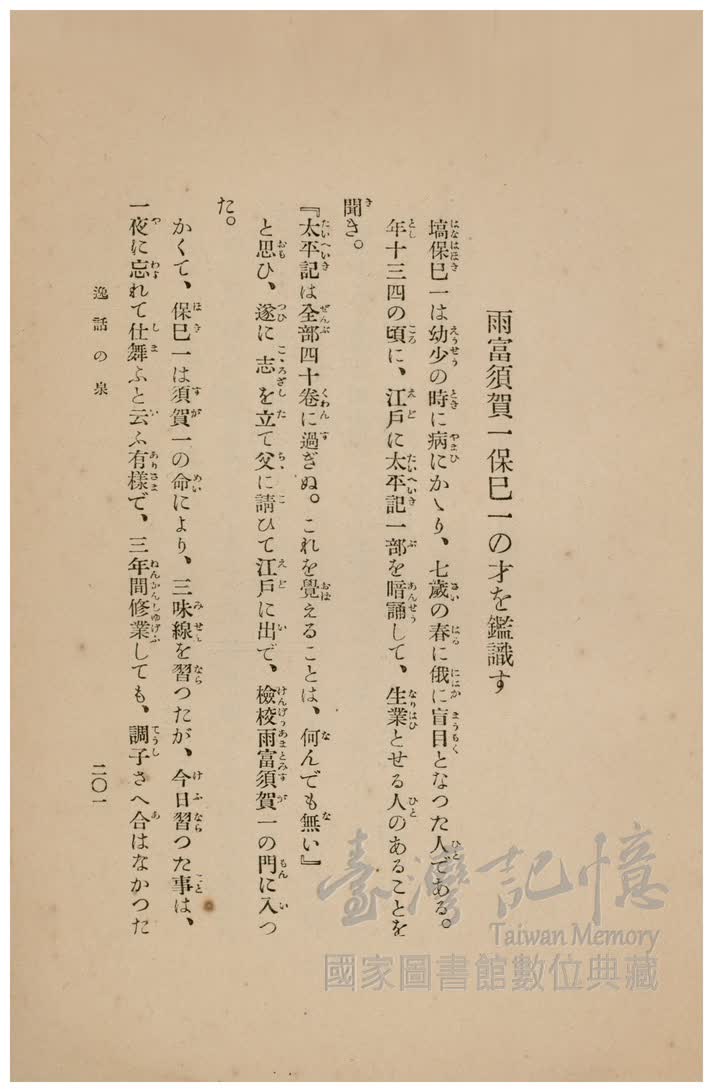 雨富須賀一保巳一の才を鑑識す
塙保巳一は幼少の時に病にかゝり、七歲の春に俄に盲目となつた人である。
年十三四の頃に、江戶に太平記一部を暗誦して、生業とせる人のあることを
聞き。
『太平記は全部四十卷に過ぎぬ。これを覺えることは、何んでも無い』
と思ひ、遂に志を立て父に請ひて江戶に出で、檢校雨富須賀一の門に入つ
た。
かくて、保巳一は須賀一の命により、三味線を習つたが、今日習つた事は、
一夜に忘れて仕舞ふと云ふ有樣で、三年間修業しても、調子さへ合はなかつた
逸話の泉
二〇一
臺灣記憶
Taiwan Memory
國家圖書館數位典藏